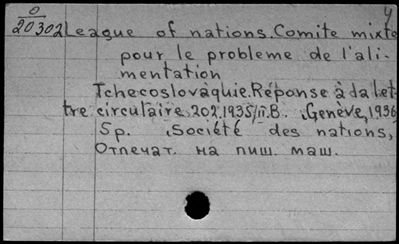 0
20302 League of nations. Comite mixte 4
pour le probleme de l'ali-
mentation
Tchecoslovaquie. Réponse à da let-
tre circulaire 202.1935/II.B. , Genève, 1936
5p. , Société des nations,
Отпечат. на пиш. маш.